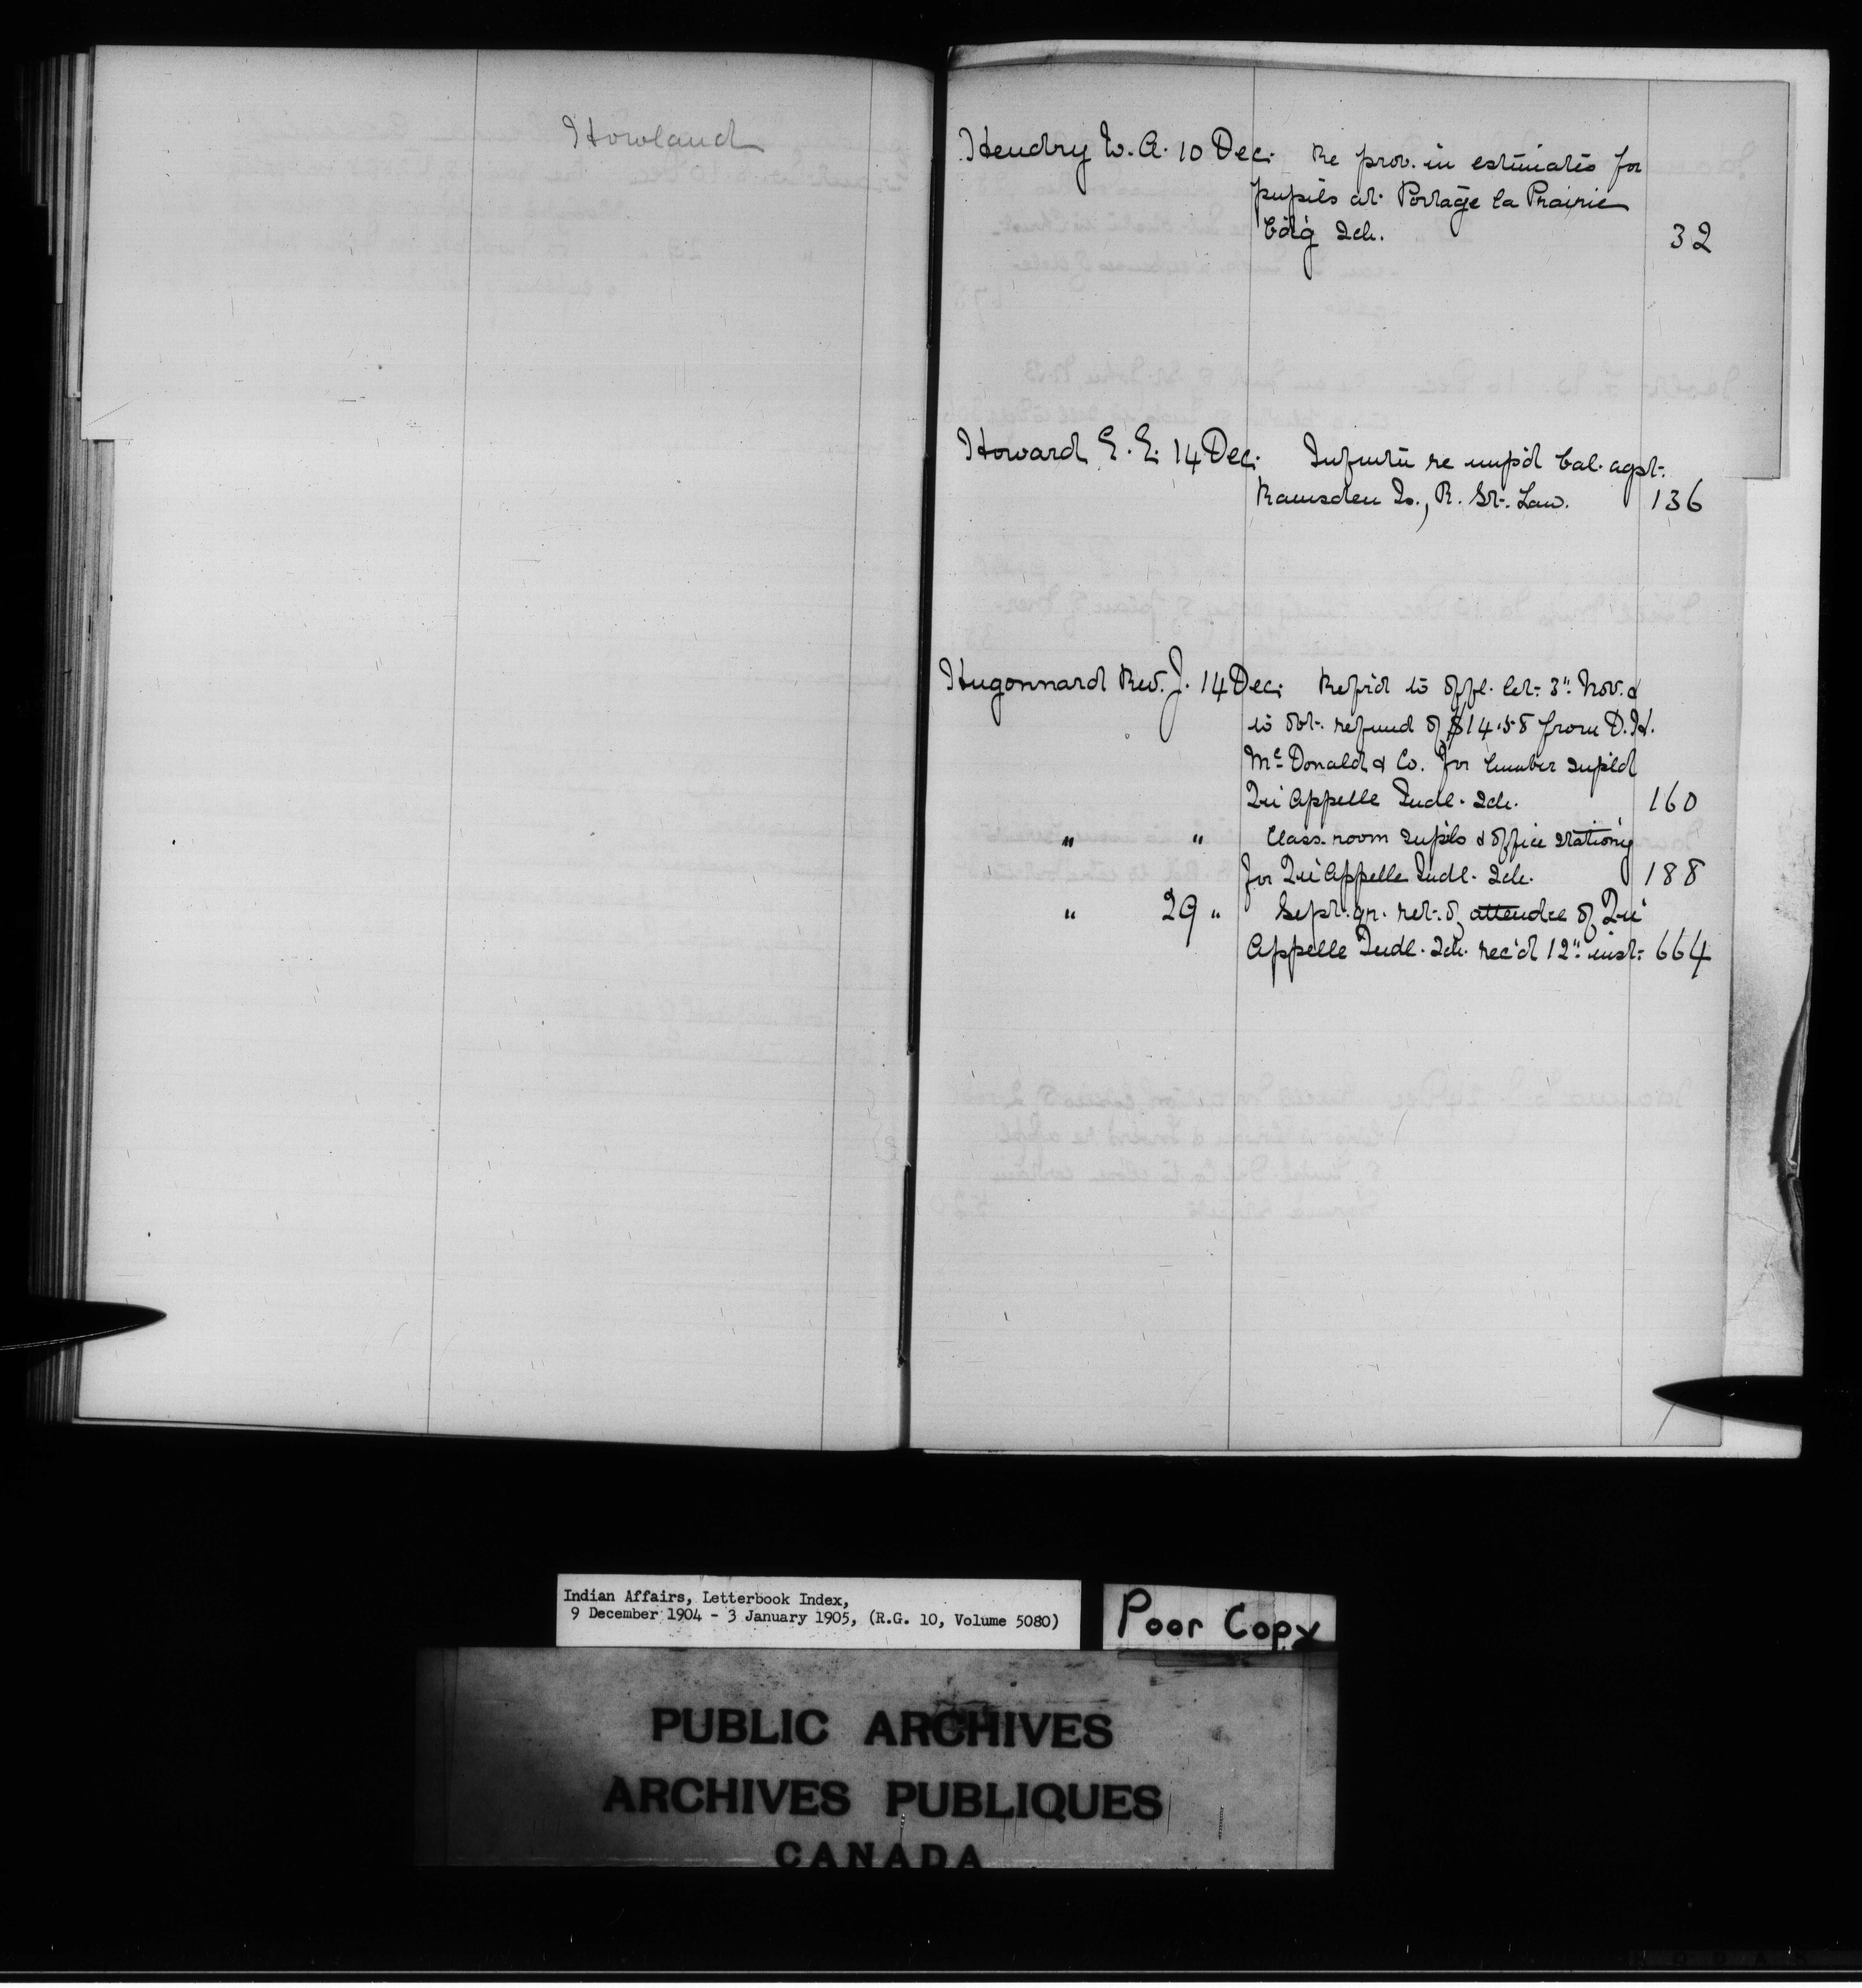 Howland
Hendry W. A. 10 Dec. Re prov. in estimates for
pupils at Portage la Prairie
Bd'g Sch. 32
Howard E. E. 14 Dec. Infmtn re unp'd bal. agst.
Ramsden Is., R. St. Law. 136
Hugonnard Rev. J. 14 Dec. Ref'd to offl. let. 3" Nov. &
to obt. refund of $14.58 from D. H.
McDonald & Co. for lumber supl'd
Qu'Appelle Indl. Sch. 160
" " Class-room supls & office station'y
for Qu'Appelle Indl. Sch. 188
" 29 " Sept. qr. ret. of attendce of Qu'
Appelle Indl. Sch. rec'd 12" inst. 664
Indian Affairs, Letterbook Index,
9 December 1904 - 3 January 1905, (R.G. 10, Volume 5080)
Poor Copy
PUBLIC ARCHIVES
ARCHIVES PUBLIQUES
CANADA